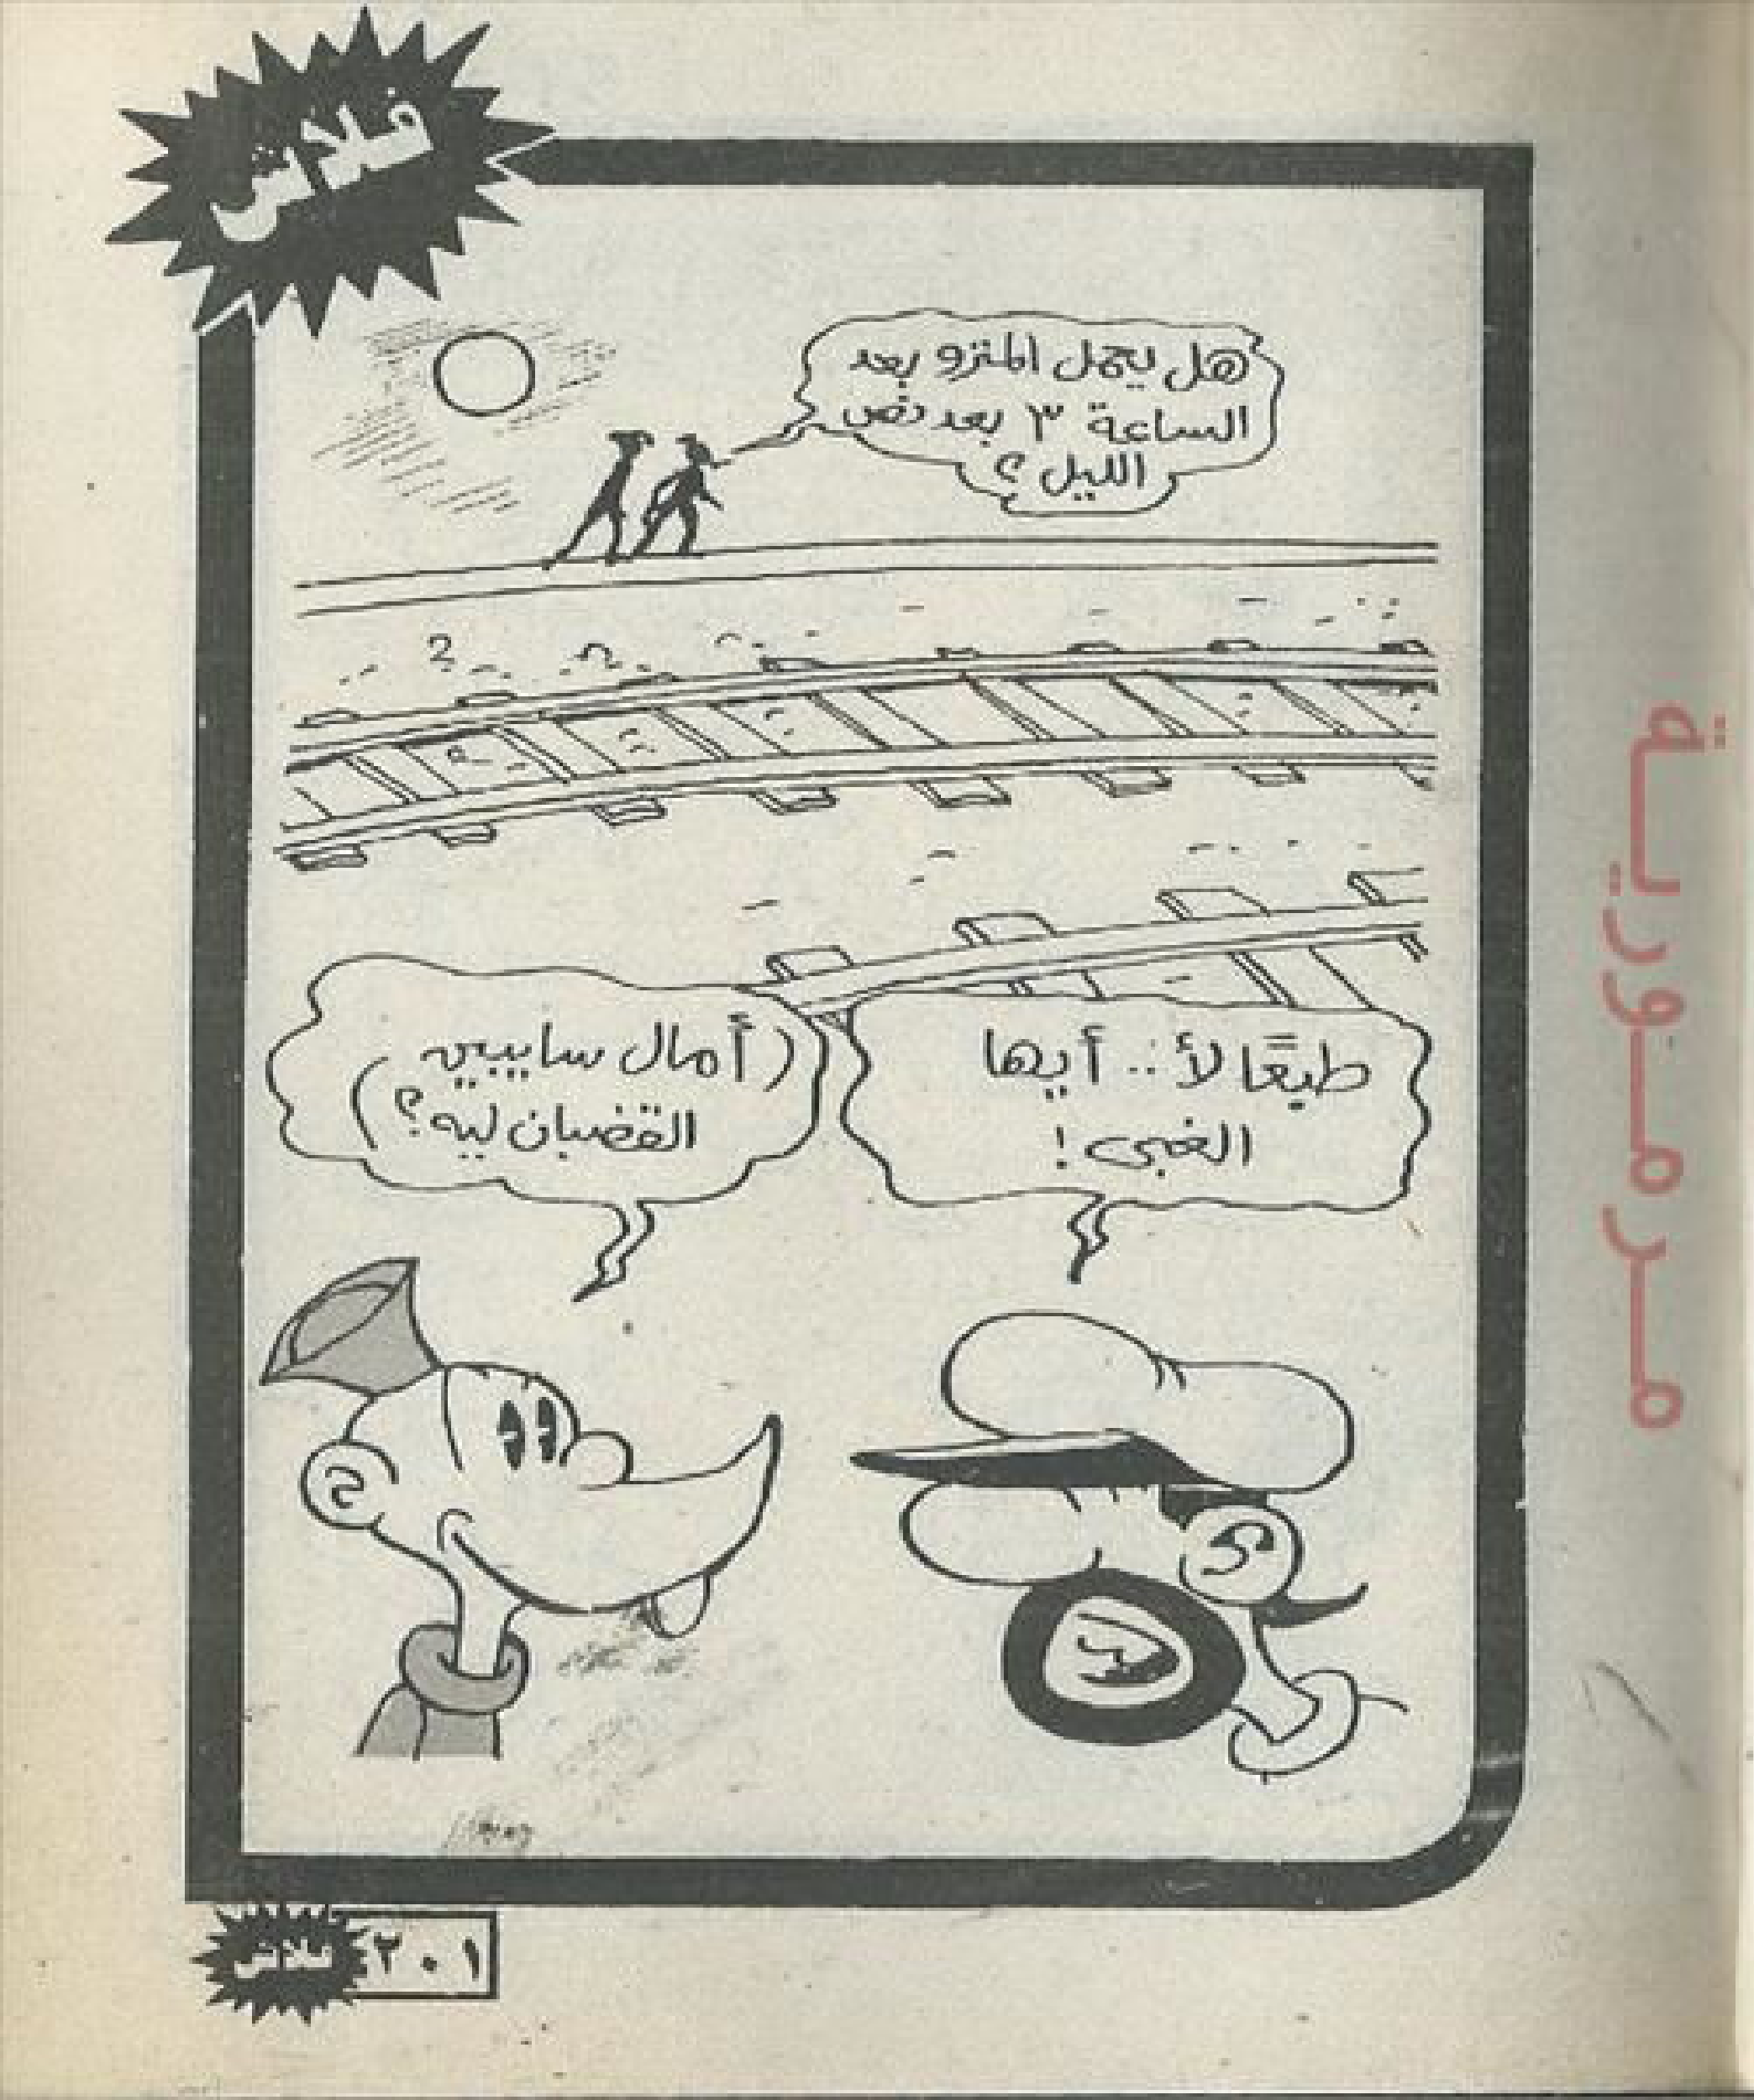 فلاش
هل يعمل المترو بعد
الساعة ٣ بعد نص
الليل ؟
طبعًا لأ .. أيها
الغبى !
(أمال سايبين
القضبان ليه ؟)
مرمورية
فلاش ٢٠١